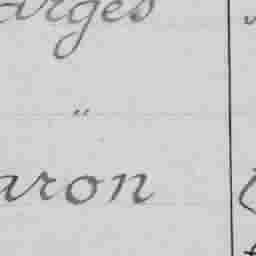 arges
"
aron